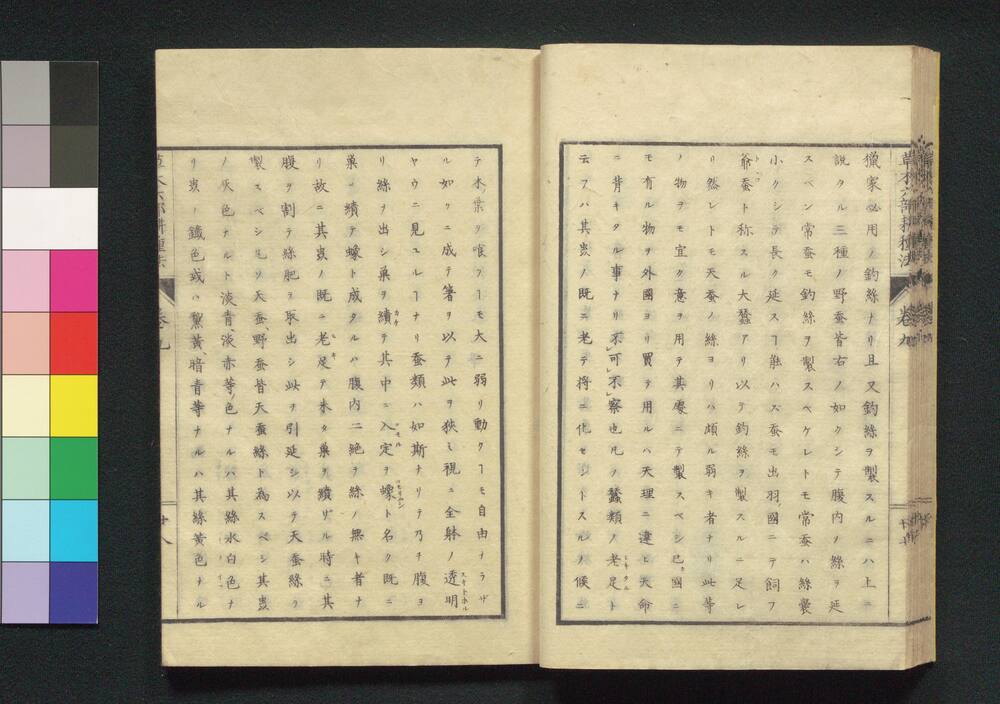 草木六部耕種法 卷九
獵家必用ノ釣絲ナリ且又釣絲ヲ製スルニハ上ニ
說タル三種ノ野蚕皆右ノ如クシテ腹内ノ絲ヲ延
スベシ常蚕モ釣絲ヲ製スベケレトモ常蚕ハ絲囊
小クシテ長ク延スヿ能ハズ蚕モ出羽國ニテ飼フ
爺蚕ト称スル大蠶アリ以テ釣絲ヲ製スルニ足レ
リ然レトモ天蚕ノ絲ヨリハ頗ル弱キ者ナリ此等
ノ物ヲモ宜ク意ヲ用テ其處ニテ製スベシ已カ國ニ
モ有ル物ヲ外國ヨリ買テ用ルハ天理ニ違ヒ天命
ニ背キタル事ナリ不可不察也凡ソ蠶類ノ老足ト
云フハ其虫ノ既ニ老テ將ニ化セントスルノ候ニ
テ木葉ヲ喰フヿモ大ニ弱リ動クヿモ自由ナラザ
ル如クニ成テ箸ヲ以テ此ヲ狹ミ視ニ全躰ノ透明スキトホル
ヤウニ見ユルヿナリ蚕類ハ如斯ナリテ乃チ腹ヨ
リ絲ヲ出シ巢ヲ績カケテ其中ニ入定ヲ蠑ト名ク既ニ
巢ヲ績テ蠑ト成タルハ腹内ニ絶テ絲ノ無キ者ナ
リ故ニ其虫ノ既ニ老足テ未タ巢ヲ績ザル時ニ其
腹ヲ割テ絲肥ヲ取出シ此ヲ引延シ以テ天蚕絲ヲ
製スベシ凡ソ天蚕、野蚕皆天蚕絲ト為スベシ其虫
ノ灰色ナルト淡青、淡赤等ノ色ナルハ其絲水白色ナ
リ虫ノ鐵色或ハ黧黃、暗青等ナルハ其絲黃色ナル
卷九
廿八